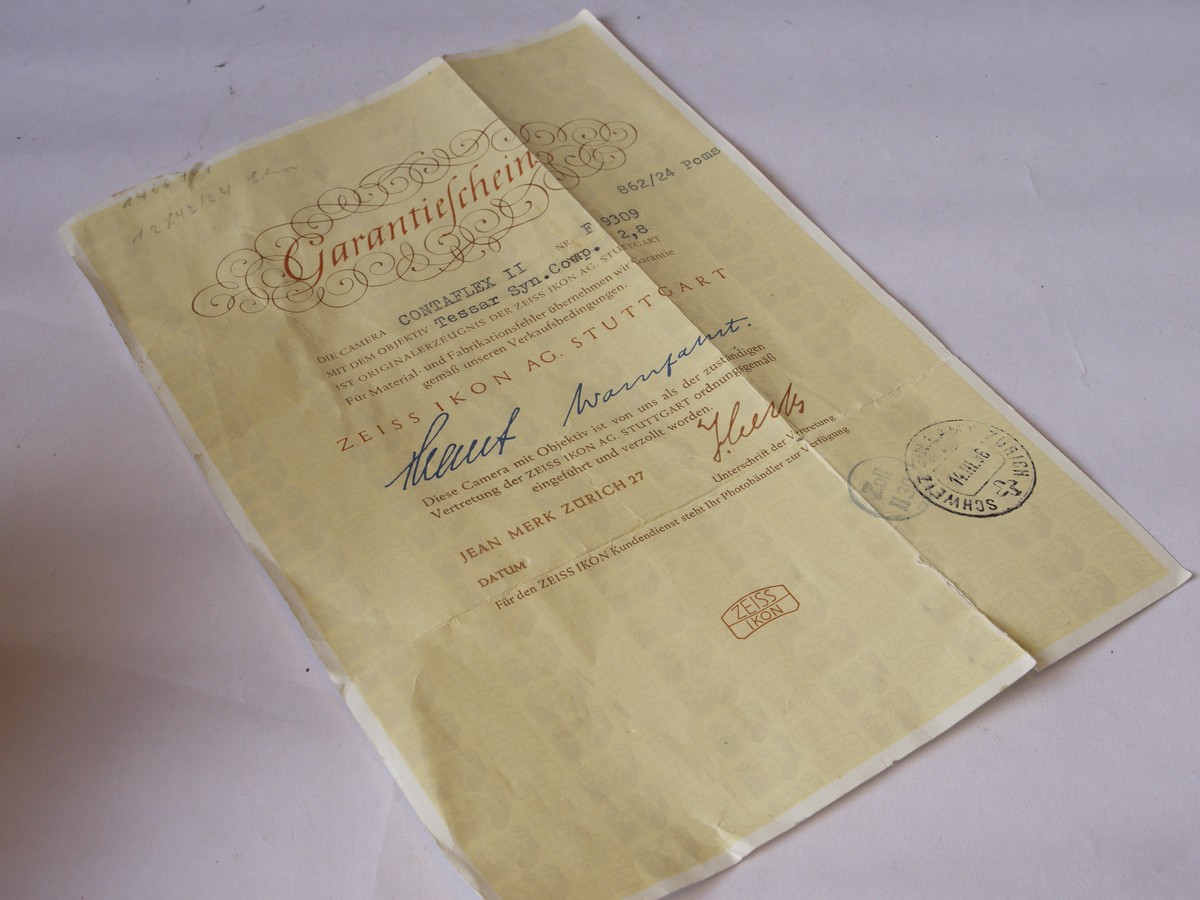 12742/24
Garantieschein
862/24 Poms
DIE CAMERA CONTAFLEX II NR. F 9309
MIT DEM OBJEKTIV Tessar Syn.Comp. 2,8
IST ORIGINALERZEUGNIS DER ZEISS IKON AG. STUTTGART
Für Material- und Fabrikationsfehler übernehmen wir Garantie
gemäß unseren Verkaufsbedingungen.
ZEISS IKON AG. STUTTGART
Diese Camera mit Objektiv ist von uns als der zuständigen
Vertretung der ZEISS IKON AG. STUTTGART ordnungsgemäß
eingeführt und verzollt worden.
JEAN MERK ZÜRICH 27
Unterschrift der Vertretung
DATUM
Für den ZEISS IKON Kundendienst steht Ihr Photohändler zur Verfügung
Zoll
SCHWEIZ ZÜRICH
14.III.56
ZEISS
IKON